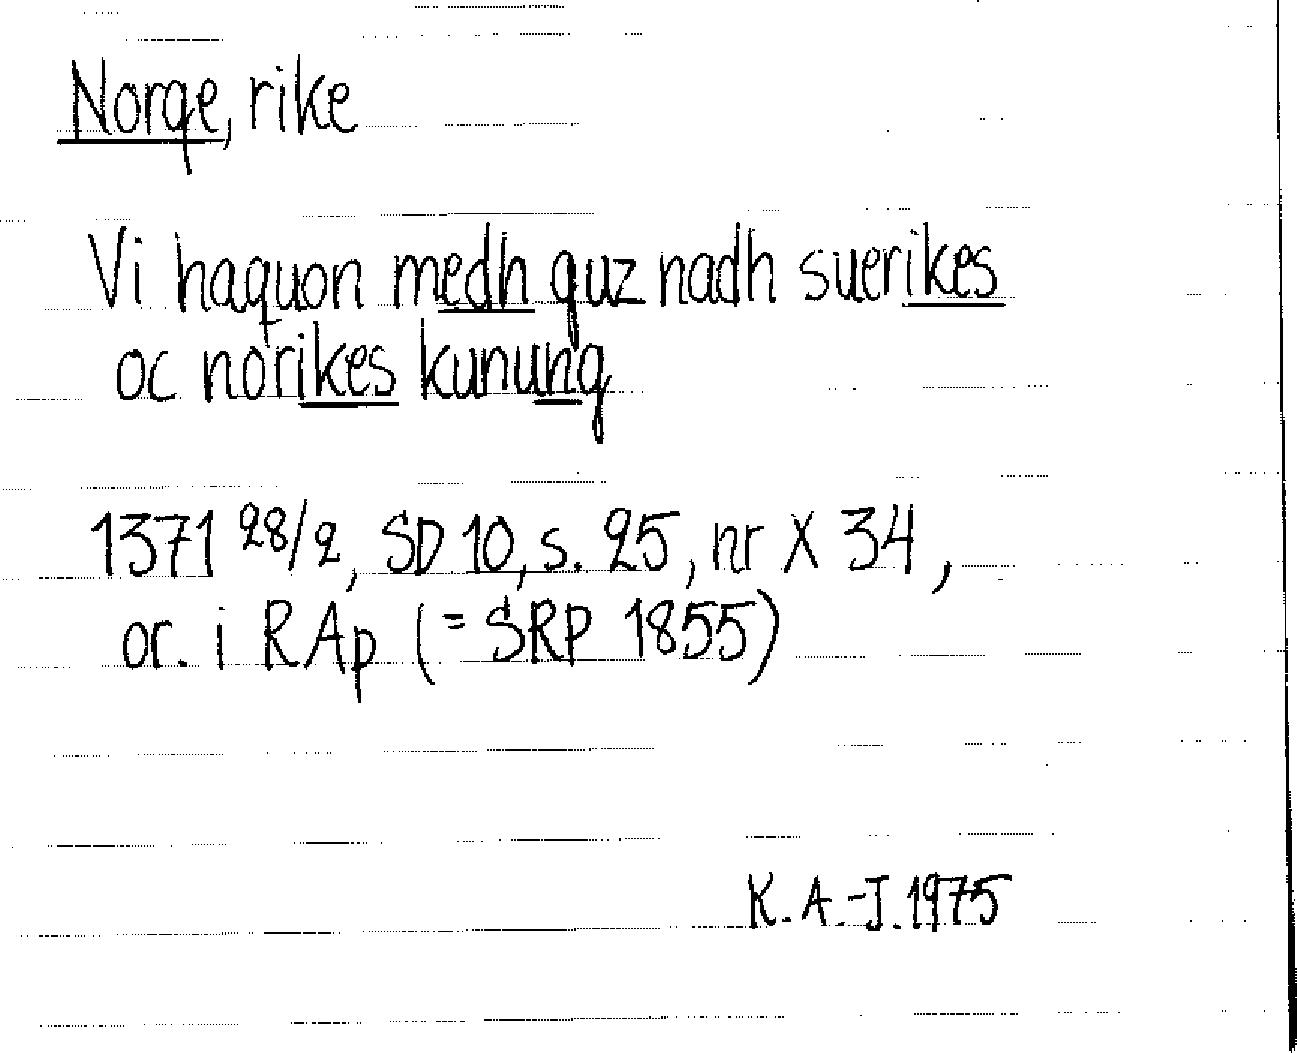 Norge, rike
Vi haquon medh guz nadh suerikes
oc norikes kunung
1371 28/2, SD 10, s. 25, nr X 34,
or. i RAp (= SRP 1855)
K. A.-J. 1975